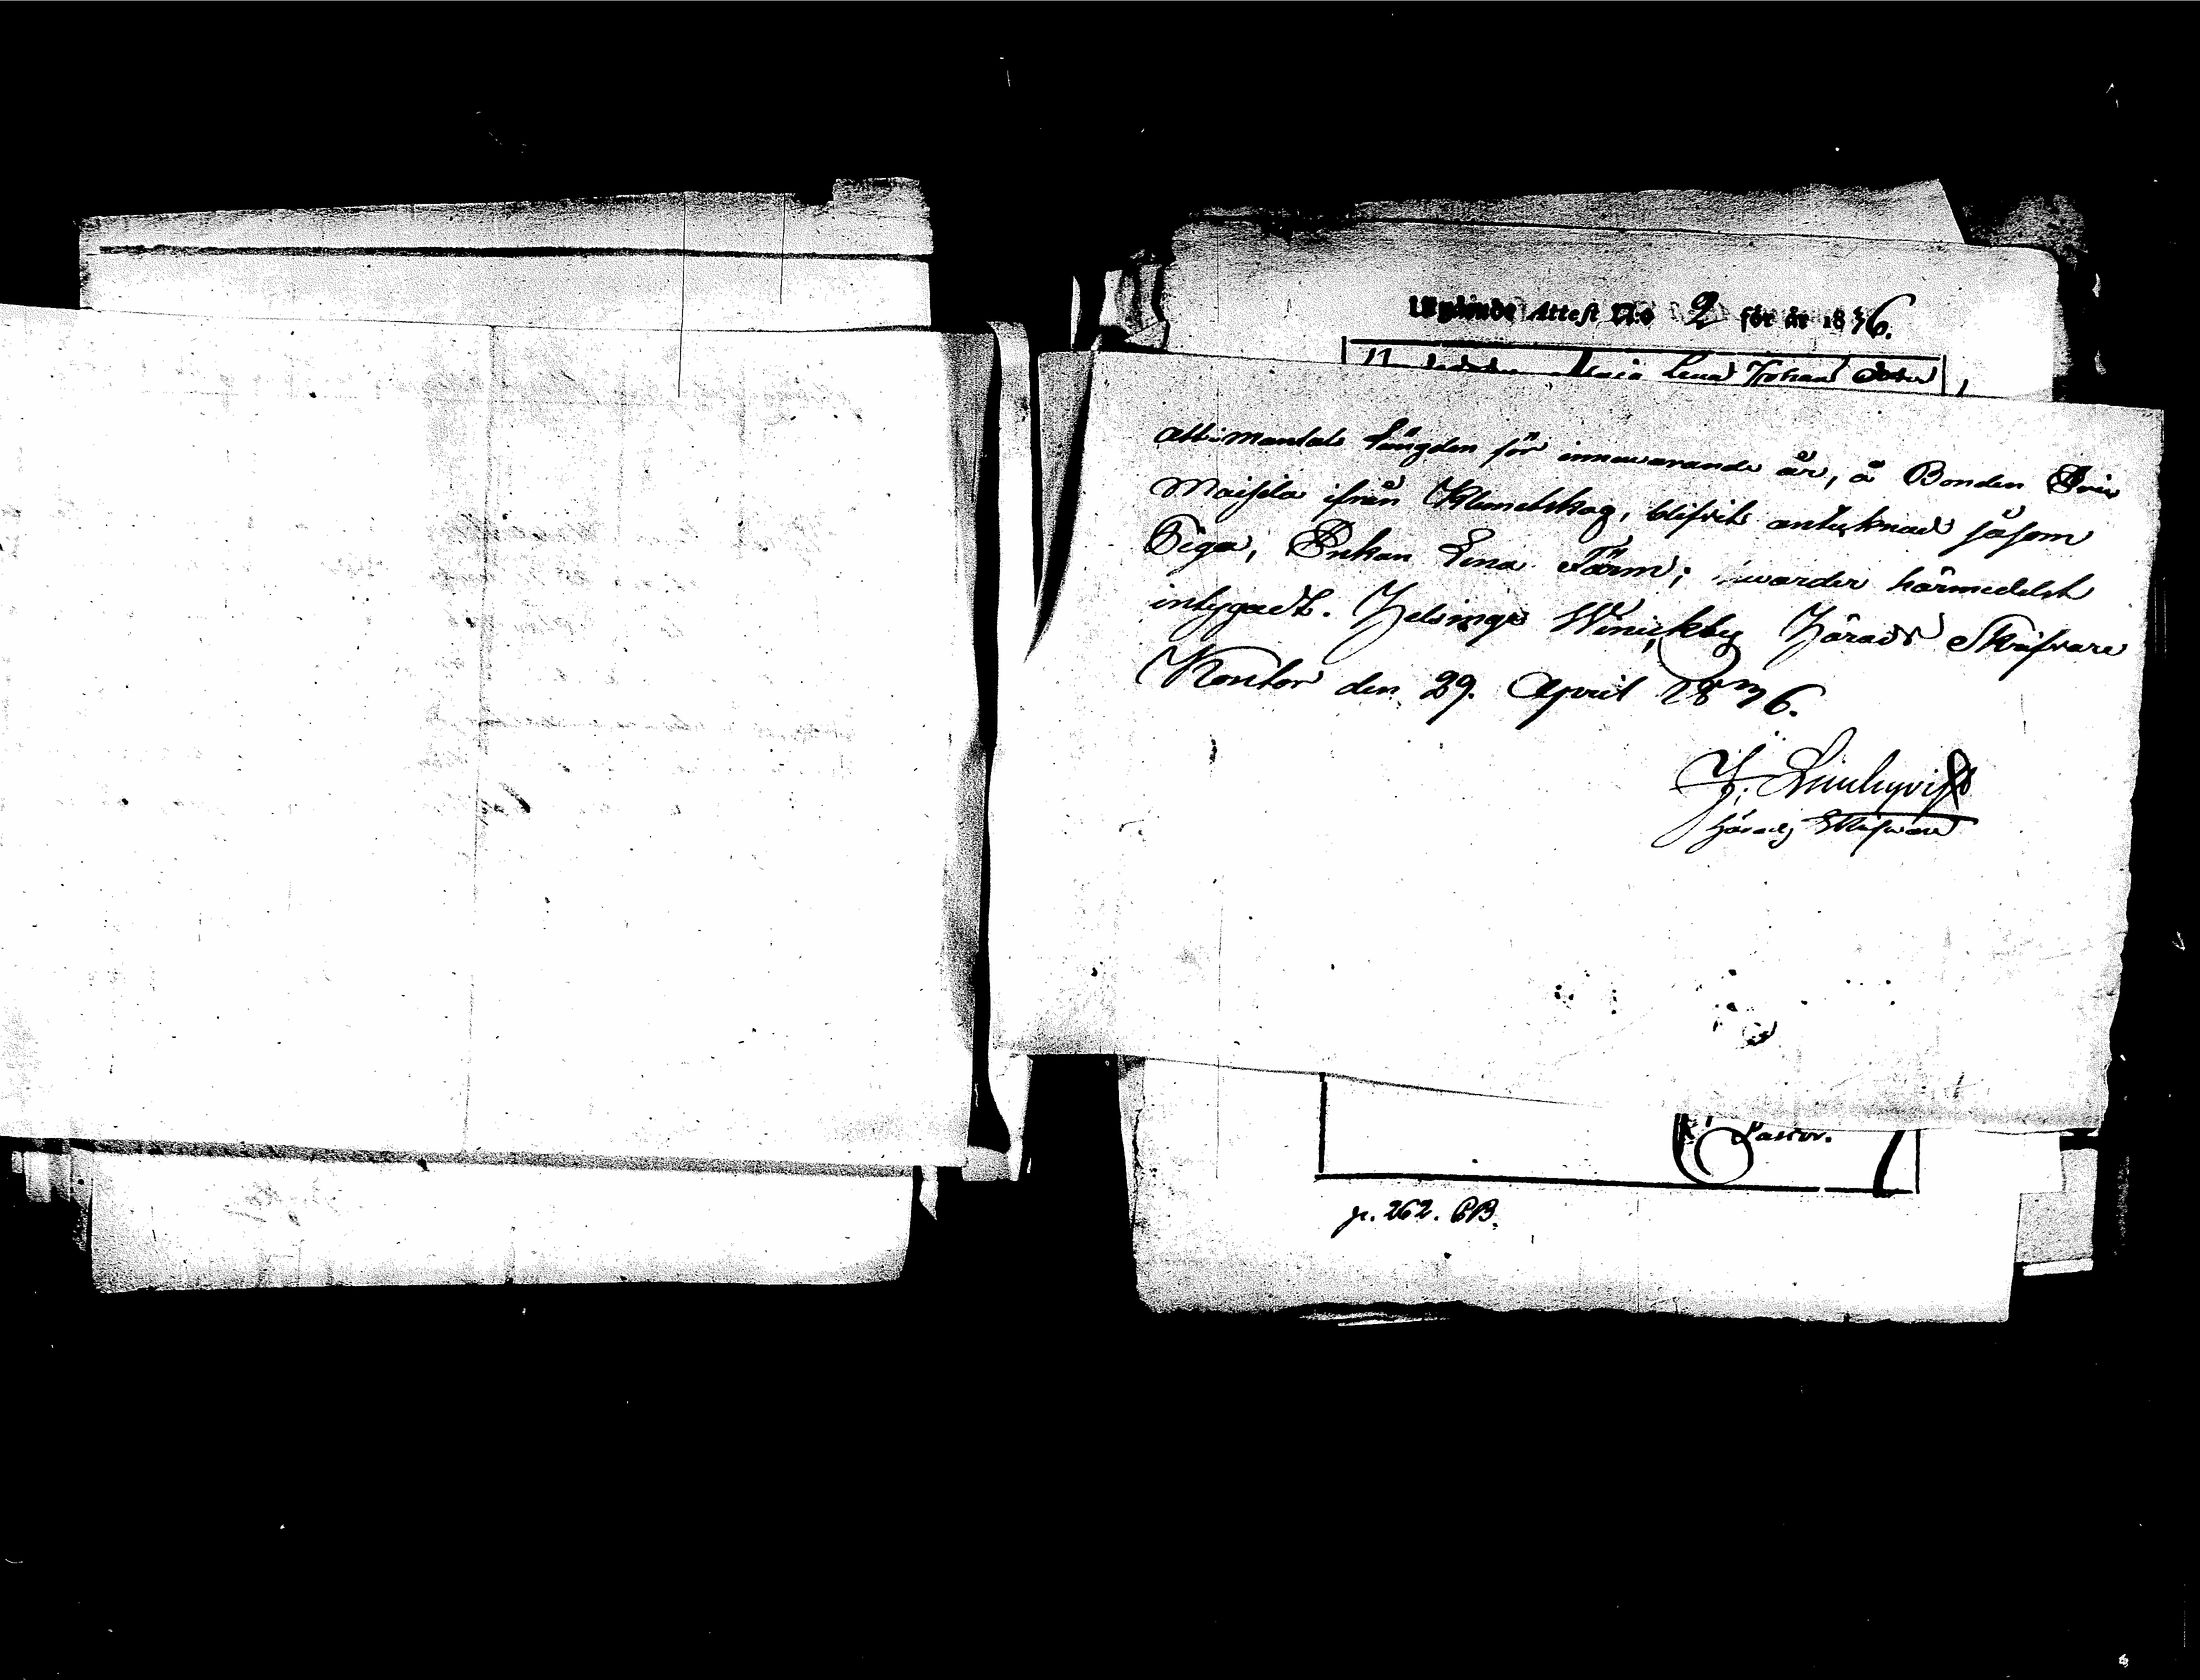 Utgående Attest N:o 2 för år 1876.
Maja Lena Johans dotter
att i mantals längden för innevarande år, å Bonden Eric
Maijsla ifrån Klemetskog, blifvit antecknad såsom
Piga, Enkan Lena Törn; warder härmedelst
intygadt. Helsinge Winickby Härads Skrifvare
Kontor den 29. April 1876.
J. Lindqvist
Härads Skrifvare
Pastor.
p. 262. CB.